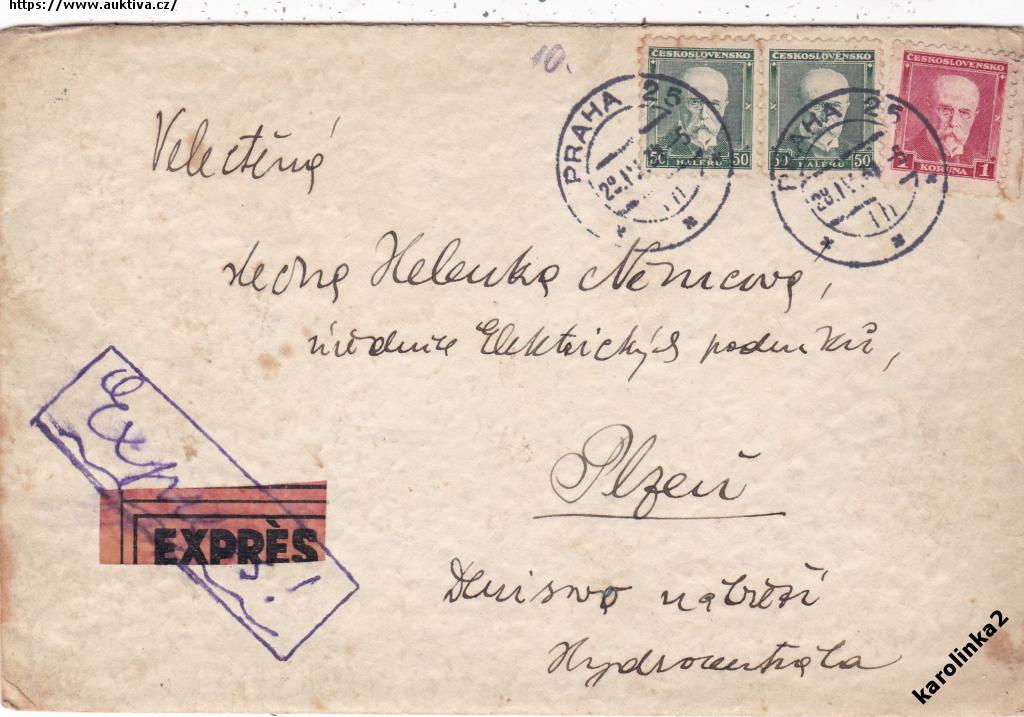 https://www.auktiva.cz/
10.
ČESKOSLOVENSKO
50 HALÉŘŮ 50
ČESKOSLOVENSKO
50 HALÉŘŮ 50
ČESKOSLOVENSKO
1 KORUNA 1
PRAHA 25
PRAHA 25
28.IV
Velectěná
slečna Helenka Němcová,
úřednice Elektrických podniků,
Plzeň
Expres!
EXPRÈS
Denisovo nábřeží
Hydrocentrála
karolinka2